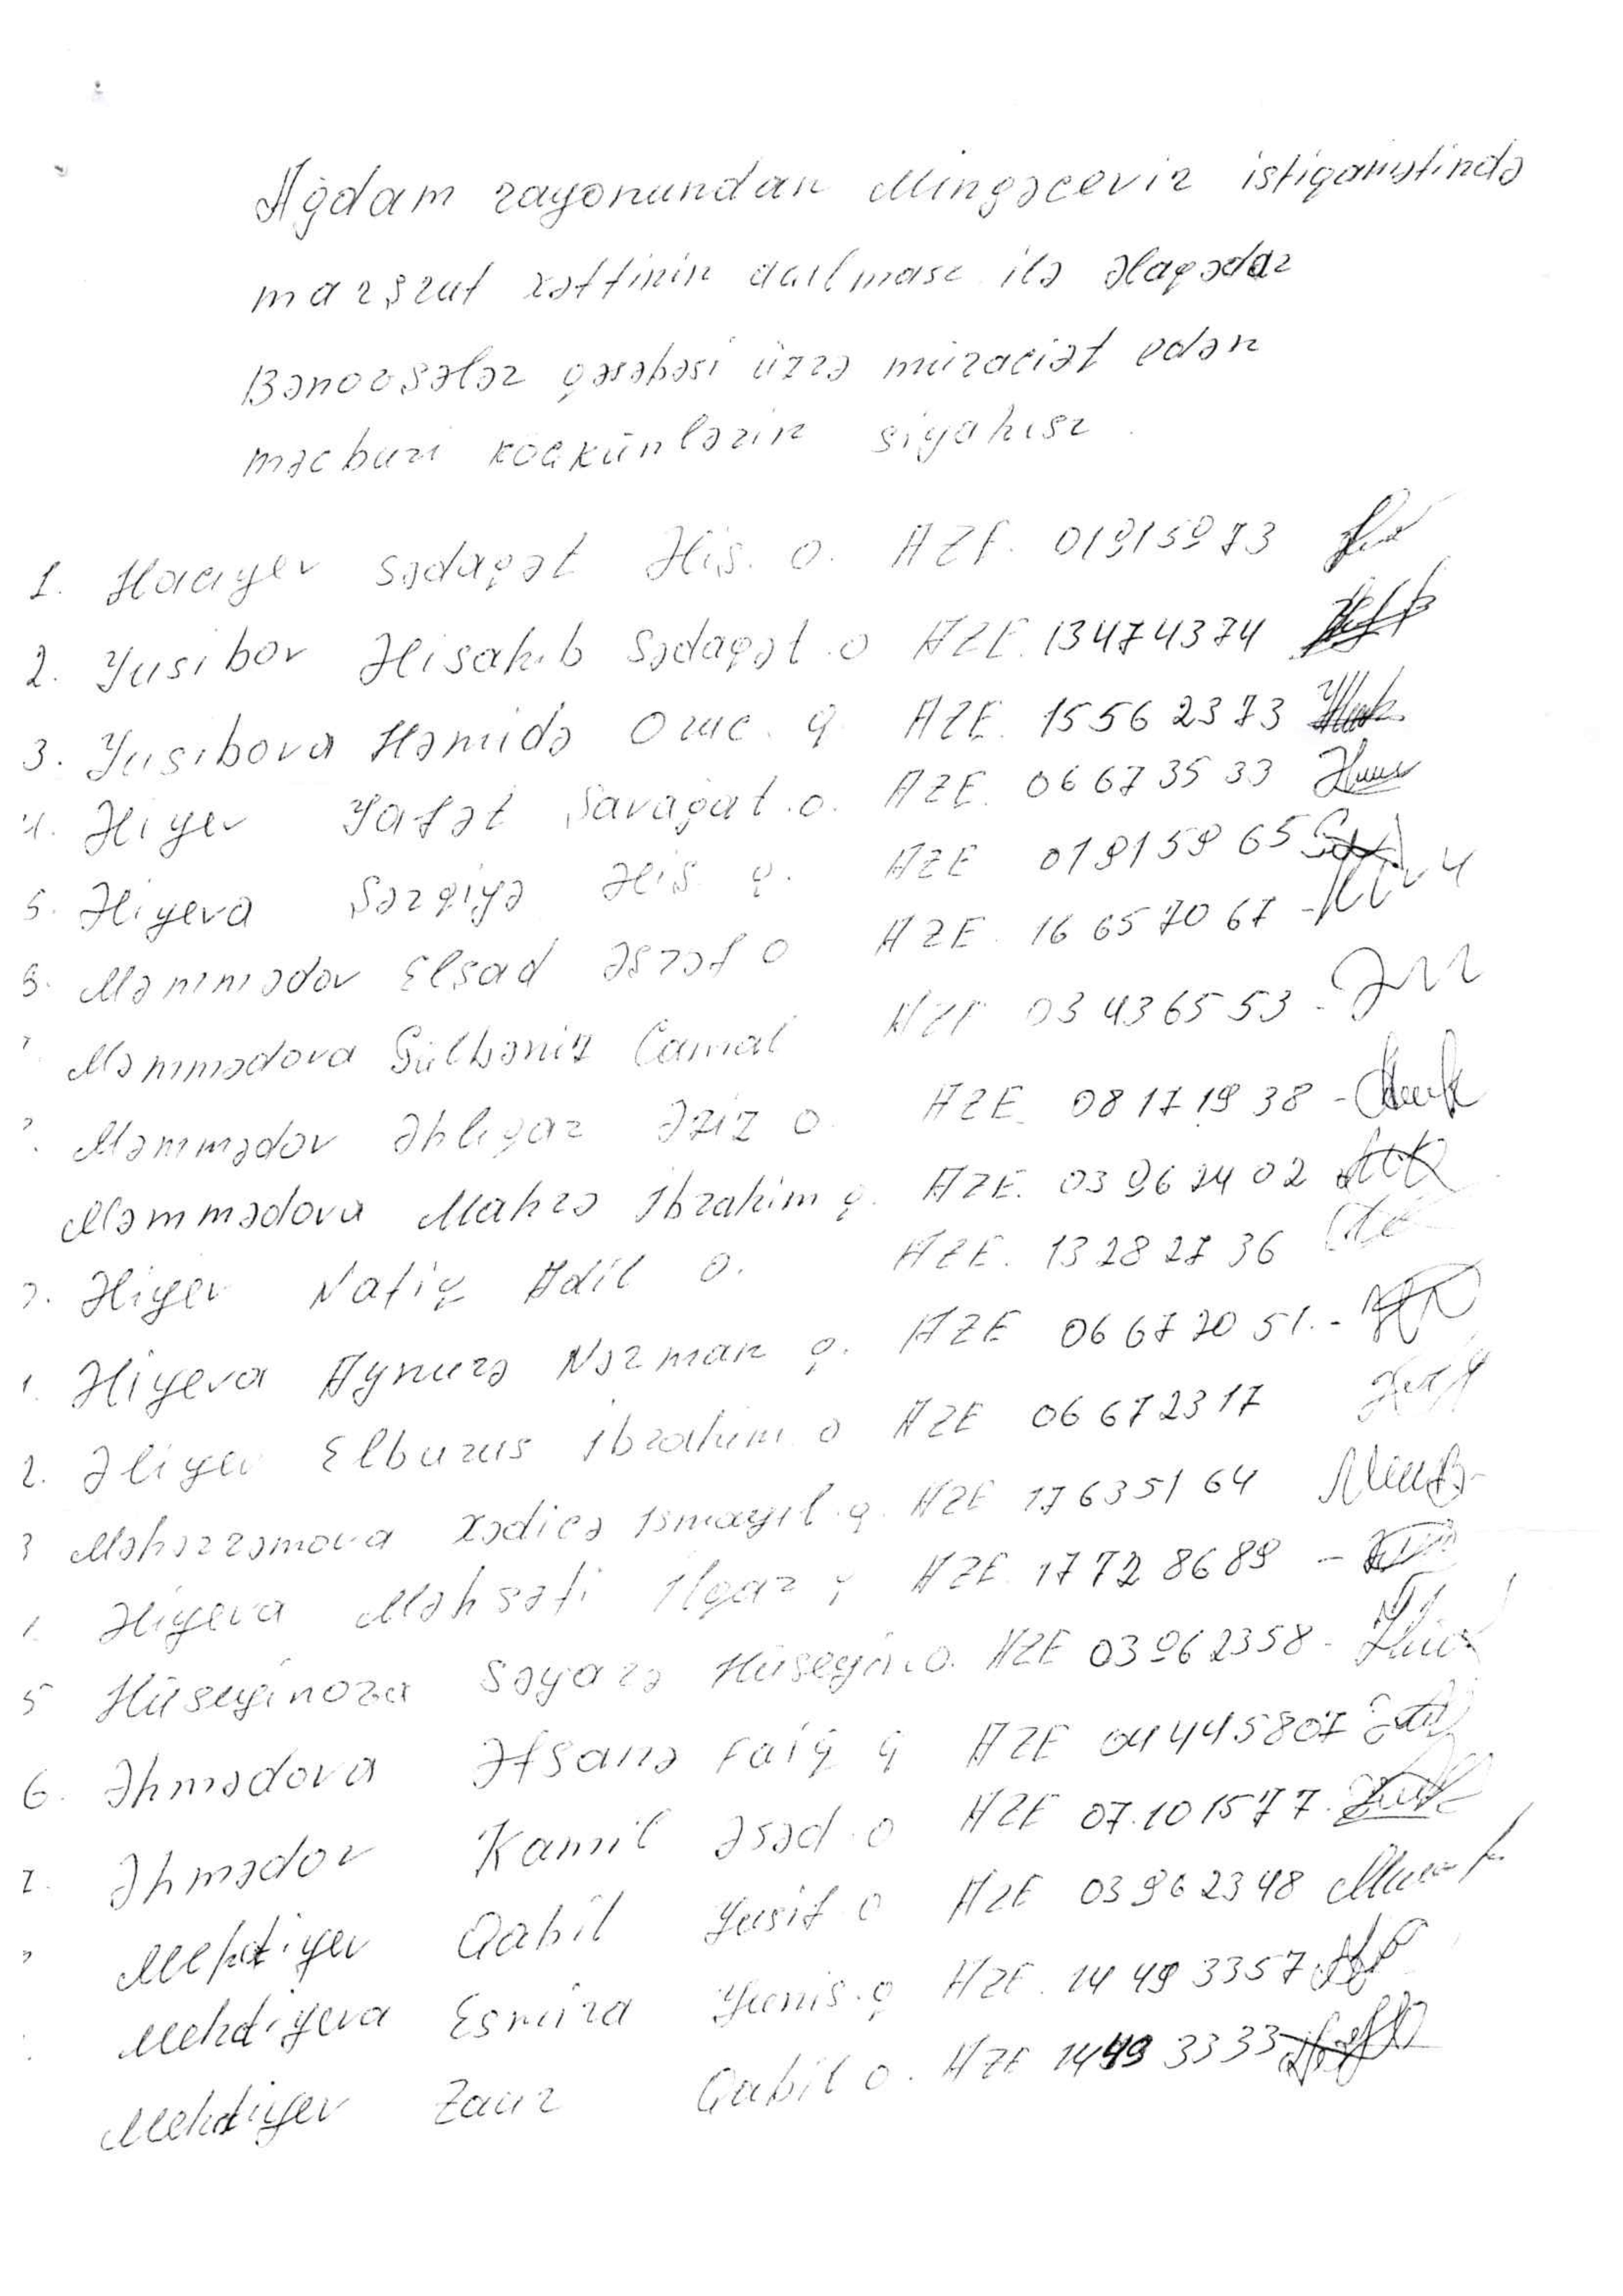 Ağdam rayonundan Mingəcevir istiqamətində
marşrut xəttinin açılması ilə əlaqədar
Bənövşələr qəsəbəsi üzrə müraciət edən
məcburi köçkünlərin siyahısı.
1. Hacıyev Sədaqət Əliş. o. AZE. 01915973
2. Yusibov Əlisahib Sədaqət. o AZE. 13474374
3. Yusibova Həmidə Oruc. q. AZE. 15562373
4. Əliyev Yafət Şavaqat. o. AZE. 06673533
5. Əliyeva Şərqiyə Əliş. q. AZE 01915965
6. Məmmədov Elşad Əşrəf o AZE. 16657067
Məmmədova Gülbəniz Camal AZE 03436553
Məmmədov Əhliyar Əziz o. AZE. 08171938
Məmmədova Mahrə İbrahim q. AZE. 03962402
Əliyev Natiq Adil o. AZE. 13282736
1. Əliyeva Aynurə Nərman q. AZE 06672051.
2. Əliyev Elburus İbrahim o AZE 06672317
3 Məhərrəmova Xədicə İsmayıl. q. AZE 17635164
Əliyeva Məhsəti İlqar q AZE. 17728689
5 Hüseyinova Səyarə Hüseyin. o. AZE 03962358
6. Əhmədova Əfsanə Faiq q AZE 04445807
7. Əhmədov Kamil Əsəd. o AZE 07.101577.
Mehdiyev Qabil Yusif o AZE 03962348
Mehdiyeva Esmira Yunis. q AZE. 14493357
Mehdiyev Zaur Qabil o. AZE 14493333